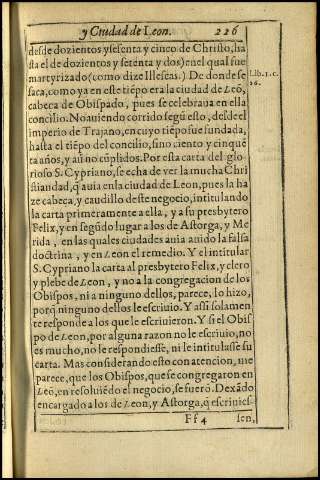 y Ciudad de Leon. 226
desde dozientos y sesenta y cinco de Christo, ha
sta el de dozientos y setenta y dos) en el qual fue
martyrizado (como dize Illescas.) De donde se
saca, como ya en este tiẽpo era la ciudad de Leõ,
cabeça de Obispado, pues se celebraua en ella
concilio. No auiendo corrido segũ esto, desde el
imperio de Trajano, en cuyo tiẽpo fue fundada,
hasta el tiẽpo del concilio, sino ciento y cinquẽ
ta años, y aũ no cũplidos. Por esta carta del glo-
rioso S. Cypriano, se echa de ver la mucha Chri
stiandad, q̃ auia en la ciudad de Leon, pues la ha
ze cabeça, y caudillo deste negocio, intitulando
la carta primeramente a ella, y a su presbytero
Felix, y en segũdo lugar a los de Astorga, y Me
rida, en las quales ciudades auia auido la falsa
doctrina, y en Leon el remedio. Y el intitular
S. Cypriano la carta al presbytero Felix, y clero
y plebe de Leon, y no a la congregacion de los
Obispos, ni a ninguno dellos, parece, lo hizo,
porq̃ ninguno dellos le escriuio. Y assi solamen
te responde a los que le escriuieron. Y si el Obis
po de Leon, por alguna razon no le escriuio, no
es mucho, no le respondiesse, ni le intitulasse su
carta. Mas considerando esto con atencion, me
parece, que los Obispos, que se congregaron en
Leõ, en resoluiẽdo el negocio, se fuerõ. Dexãdo
encargado a los de Leon, y Astorga, q̃ escriuies-
Ff 4 sen,
Lib. 1. c.
26.